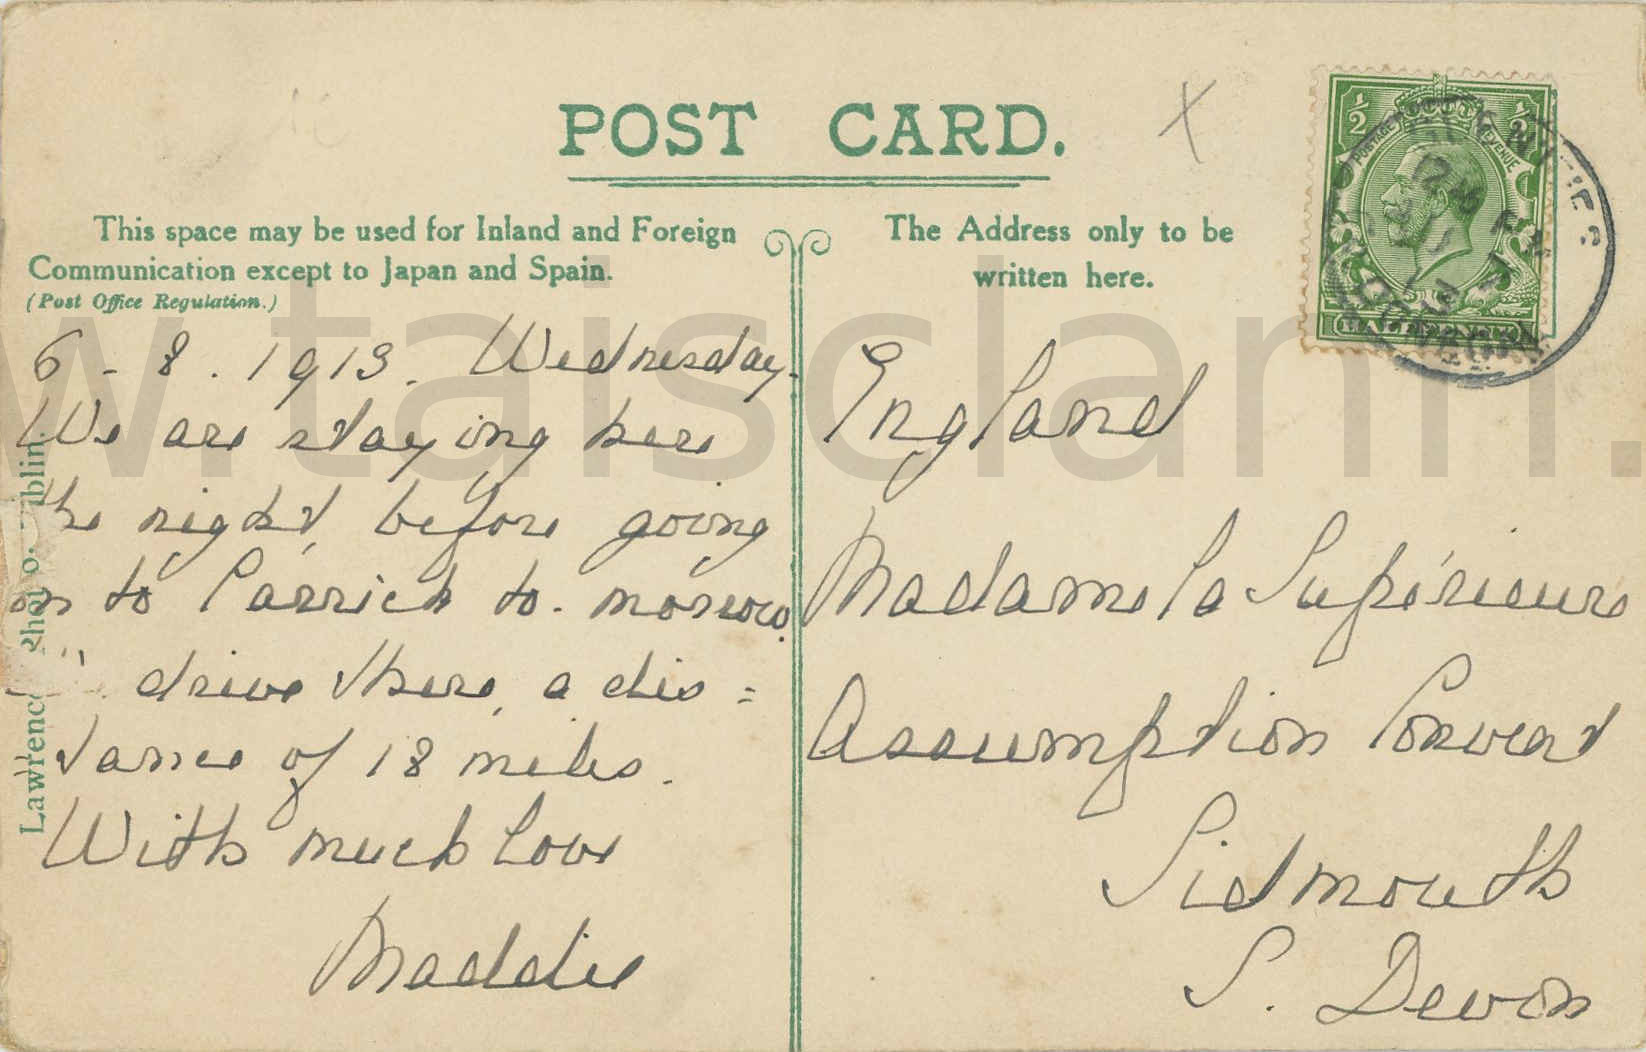 POST CARD.
This space may be used for Inland and Foreign
Communication except to Japan and Spain.
(Post Office Regulation.)
The Address only to be
written here.
6 - 8 . 1913. Wednesday.
We are staying here
the night, before going
on to Carrick to-morrow.
drive there, a dis=
tance of 18 miles.
With much love
Maddie
England
Madame la Supérieure
Assumption Convent
Sidmouth
S. Devon
Lawrence
½
½
POSTAGE REVENUE
w.taisclann.